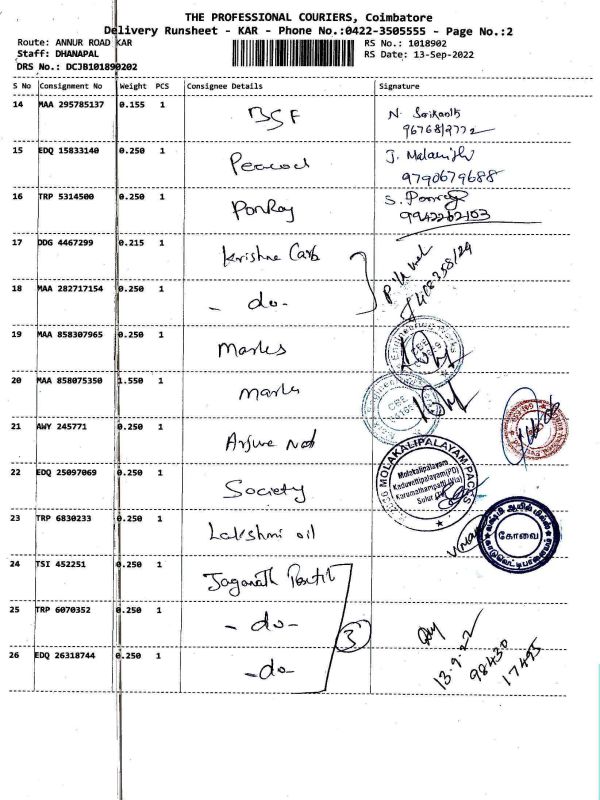 THE PROFESSIONAL COURIERS, Coimbatore
Delivery Runsheet - KAR - Phone No.:0422-3505555 - Page No.:2
Route: ANNUR ROAD KAR
RS No.: 1018902
Staff: DHANAPAL
RS Date: 13-Sep-2022
DRS No.: DCJB101890202
S No Consignment No Weight PCS Consignee Details Signature
14 MAA 295785137 0.155 1 BSF N. Srikanth
15 EDQ 15833140 0.250 1 Peacock
9790679688
16 TRP 5314500 0.250 1 PonRaj S. Ponraj
9942262103
17 DDG 4467299 0.215 1 Krishna Carb
18 MAA 282717154 0.250 1 - do -
19 MAA 858307965 0.250 1 Marks
20 MAA 858075350 1.550 1 Marks
21 AWY 245771 0.250 1
22 EDQ 25097069 0.250 1 Society
MOLAKALIPALAYAM
Molakalipalayam
Kaduvettipalayam(PO)
Karumathampatti (Via)
Sulur
23 TRP 6830233 0.250 1 Lakshmi oil
கோவை
24 TSI 452251 0.250 1 Jaganath
25 TRP 6070352 0.250 1 - do -
3
26 EDQ 26318744 0.250 1 - do -
13.9.22
98430
17495